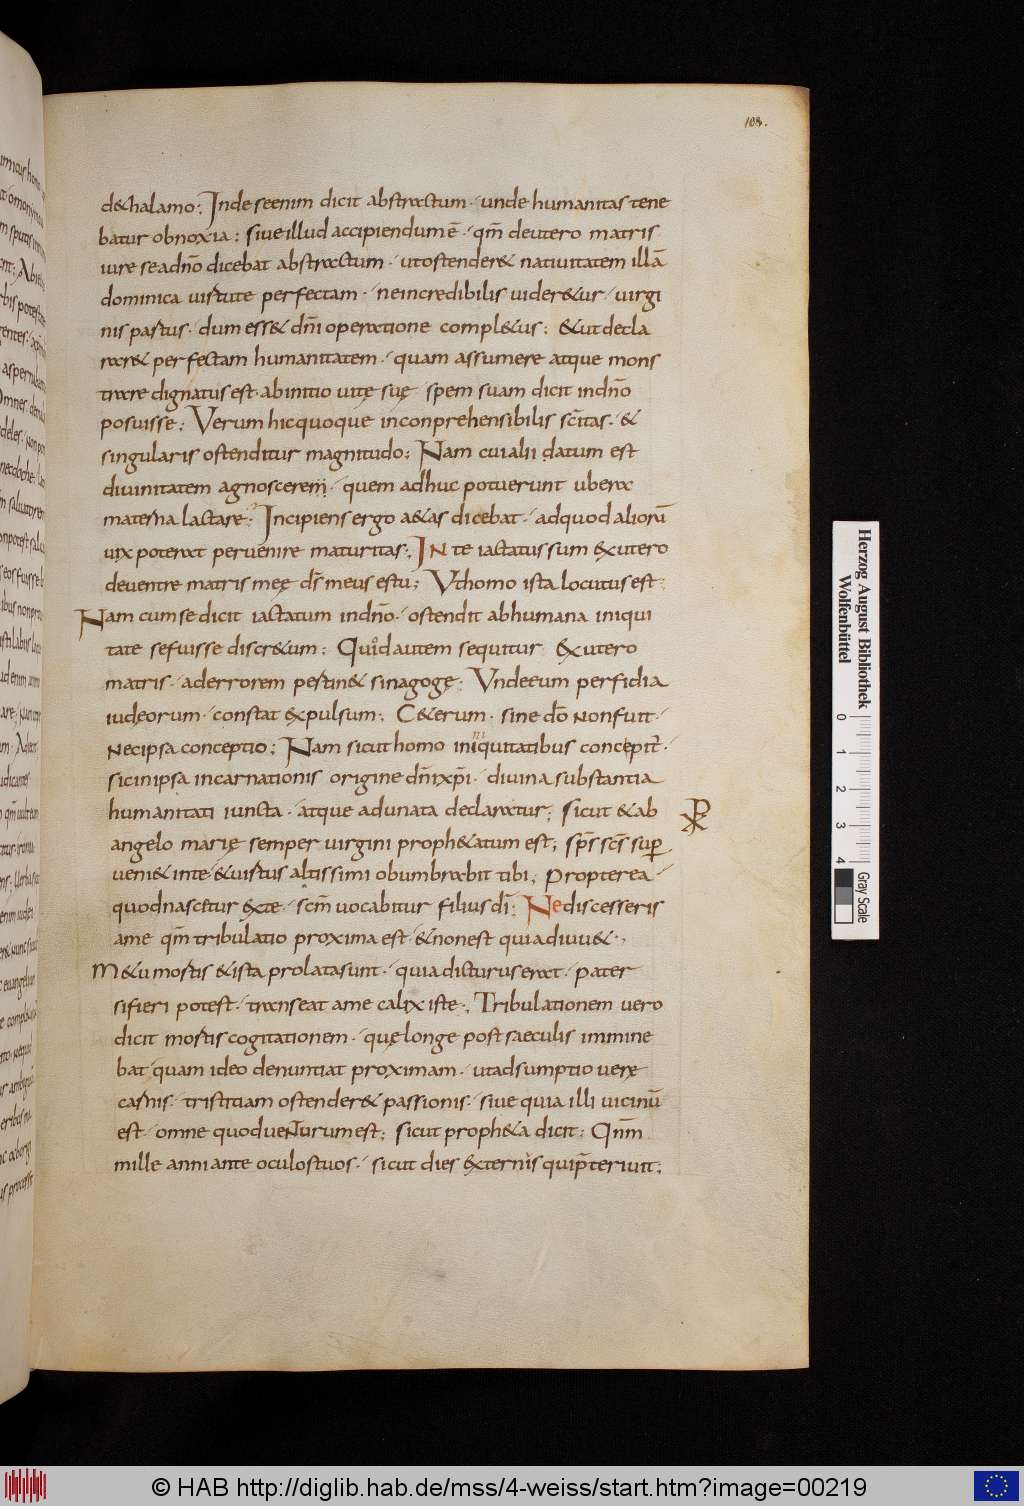 108.
de&halamo; Inde se enim dicit abstractum· unde humanitas tene
batur obnoxia; siue illud accipiendum ē· qm̄ deutero matris
iure se a dn̄o dicebat abstractum· ut ostender& natiuitatem illā
dominica uirtute perfectam· ne incredibilis uider&ur· uirgi
nis partus· dum ess& dn̄i operatione compl&us; &ut decla
rar& perfectam humanitatem· quam assumere atque mons
trare dignatus est· ab initio uitę suę spem suam dicit in dn̄o
posuisse; Verum hic quoque inconprehensibilis sc̄itas· &
singularis ostenditur magnitudo; Nam cui alii datum est
diuinitatem agnoscerem· quem adhuc potuerunt ubera
materna lactare; Incipiens ergo a&as dicebat· ad quod aliorū
uix poterat peruenire maturitas; IN te iactatus sum ex utero
de uentre matris meę ds̄ meus es tu; Ut homo ista locutus est·
Nam cum se dicit iactatum in dn̄o· ostendit ab humana iniqui
tate se fuisse discr&um; Quid autem sequitur Ex utero
matris· ad errorem pertin& sinagogę; Unde eum perfidia
iudeorum· constat expulsum; C&erum· sine do̅ non fuit·
nec ipsa conceptio; Nam sicut homo in iniquitatibus concepit̄·
sic in ipsa incarnationis origine dn̄i xp̄i· diuina substantia
humanitati iuncta· atque adunata declaratur; sicut & ab
angelo marię semper uirgini proph&atum est; sp̄s sc̄s sup̄
ueni& in te· & uirtus altissimi obumbrabit tibi; Propterea·
quod nascetur ex te· sc̄m uocabitur filius di̅; Ne discesseris
a me qm̄ tribulatio proxima est· & non est qui adiuu&·
M&u mortis & ista prolata sunt· quia dicturus erat· pater
si fieri potest· transeat a me calix iste; Tribulationem uero
dicit mortis cogitationem· quę longe post saeculis immine
bat quam ideo denuntiat proximam· ut adsumptio uerę
carnis· tristitiam ostender& passionis· siue quia illi uicinū
est· omne quod ueNturum est; sicut proph&a dicit; Qnm̄
mille anni ante oculos tuos· sicut dies externis qui p̄teriuit;
Herzog August Bibliothek
Wolfenbüttel
0 1 2 3 4
Gray Scale
© HAB http://diglib.hab.de/mss/4-weiss/start.htm?image=00219